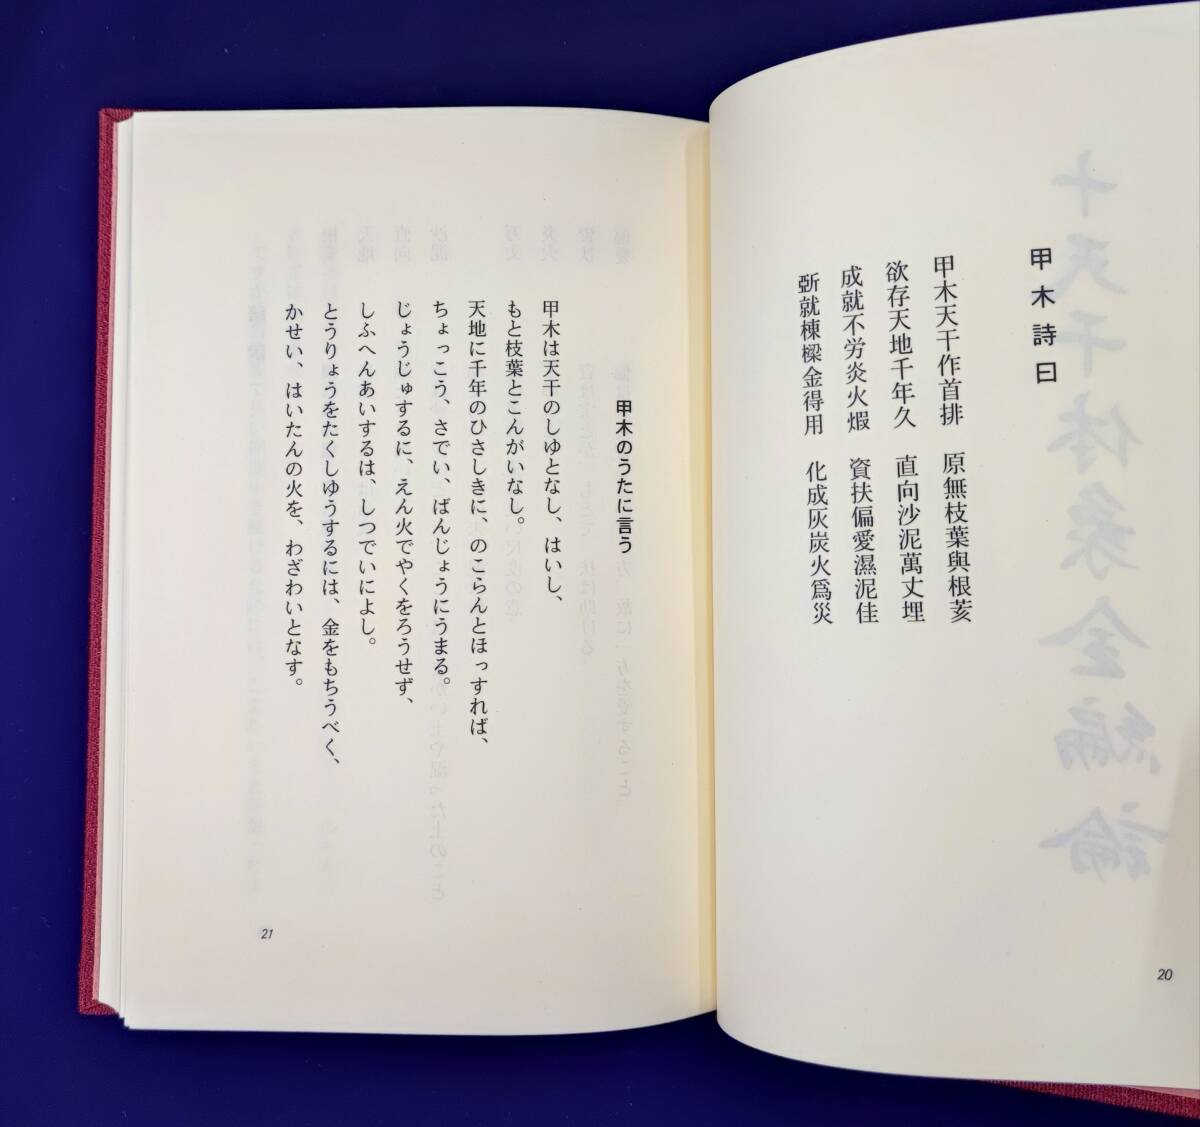 甲木詩曰
甲木天干作首排　原無枝葉與根荄
欲存天地千年久　直向沙泥萬丈埋
成就不労炎火煆　資扶偏愛濕泥佳
斲就棟樑金得用　化成灰炭火爲災
20
甲木のうたに言う
甲木は天干のしゆとなし、はいし、
もと枝葉とこんがいなし。
天地に千年のひさしきに、のこらんとほっすれば、
ちょっこう、さでい、ばんじょうにうまる。
じょうじゅするに、えん火でやくをろうせず、
しふへんあいするは、しつでいによし。
とうりょうをたくしゆうするには、金をもちうべく、
かせい、はいたんの火を、わざわいとなす。
21